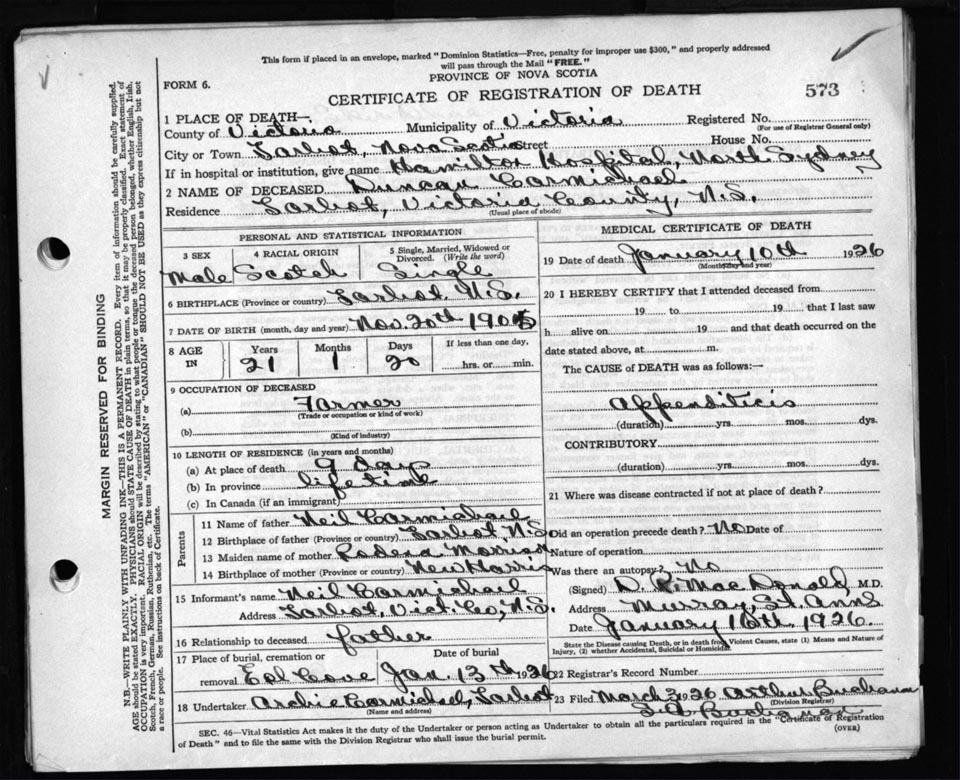 This form if placed in an envelope, marked "Dominion Statistics—Free, penalty for improper use $300," and properly addressed
will pass through the Mail "FREE."
PROVINCE OF NOVA SCOTIA
FORM 6.
CERTIFICATE OF REGISTRATION OF DEATH
573
1 PLACE OF DEATH—
County of Victoria Municipality of Victoria Registered No.
(For use of Registrar General only)
City or Town Tarbot, Nova Scotia Street House No.
If in hospital or institution, give name Hamilton Hospital, North Sydney
2 NAME OF DECEASED Duncan Carmichael
Residence Tarbot, Victoria County, N.S.
(Usual place of abode)
PERSONAL AND STATISTICAL INFORMATION
3 SEX 4 RACIAL ORIGIN 5 Single, Married, Widowed or
Divorced. (Write the word)
Male Scotch Single
6 BIRTHPLACE (Province or country) Tarbot. N.S.
7 DATE OF BIRTH (month, day and year) Nov. 20th 1905
8 AGE IN Years Months Days If less than one day,
21 1 20 hrs. or min.
9 OCCUPATION OF DECEASED
(a) Farmer
(Trade or occupation or kind of work)
(b)
(Kind of industry)
10 LENGTH OF RESIDENCE (in years and months)
(a) At place of death 9 days
(b) In province lifetime
(c) In Canada (if an immigrant)
Parents
11 Name of father Neil Carmichael
12 Birthplace of father (Province or country) Tarbot, N.S.
13 Maiden name of mother Morrison
14 Birthplace of mother (Province or country) New Harris
15 Informant's name Neil Carmichael
Address Tarbot, Vict. Co., N.S.
16 Relationship to deceased father
17 Place of burial, cremation or Date of burial
removal Eel Cove Jan. 13th 1926
18 Undertaker Archie Carmichael, Tarbot
(Name and address)
MEDICAL CERTIFICATE OF DEATH
19 Date of death January 10th 1926
(Month, day and year)
20 I HEREBY CERTIFY that I attended deceased from
19 to 19 that I last saw
h alive on 19 and that death occurred on the
date stated above, at m.
The CAUSE OF DEATH was as follows:—
Appenditicis
(duration) yrs. mos. dys.
CONTRIBUTORY
(duration) yrs. mos. dys.
21 Where was disease contracted if not at place of death?
Did an operation precede death? No Date of
Nature of operation
Was there an autopsy? No
(Signed) D. R. MacDonald, M.D.
Address Murray, St. Anns
Date January 16th. 1926.
State the Disease causing Death, or in death from Violent Causes, state (1) Means and Nature of
Injury, (2) whether Accidental, Suicidal or Homicidal.
22 Registrar's Record Number
23 Filed March 3 1926 Arthur Buchanan
(Division Registrar)
Buchanan
(Registrar)
SEC. 46—Vital Statistics Act makes it the duty of the Undertaker or person acting as Undertaker to obtain all the particulars required in the "Certificate of Registration
of Death" and to file the same with the Division Registrar who shall issue the burial permit.
(OVER)
MARGIN RESERVED FOR BINDING
N.B.—WRITE PLAINLY WITH UNFADING INK—THIS IS A PERMANENT RECORD. Every item of information should be carefully supplied.
AGE should be stated EXACTLY. PHYSICIANS should STATE CAUSE OF DEATH in plain terms, so that it may be properly classified. Exact statement of
OCCUPATION is very important. RACIAL ORIGIN will be described by stating to what people or tongue the deceased person belonged, whether English, Irish,
Scotch, French, German, Russian, Ruthenian, etc. The terms "AMERICAN" or "CANADIAN" SHOULD NOT BE USED as they express citizenship but not
a race or people. See instructions on back of Certificate.